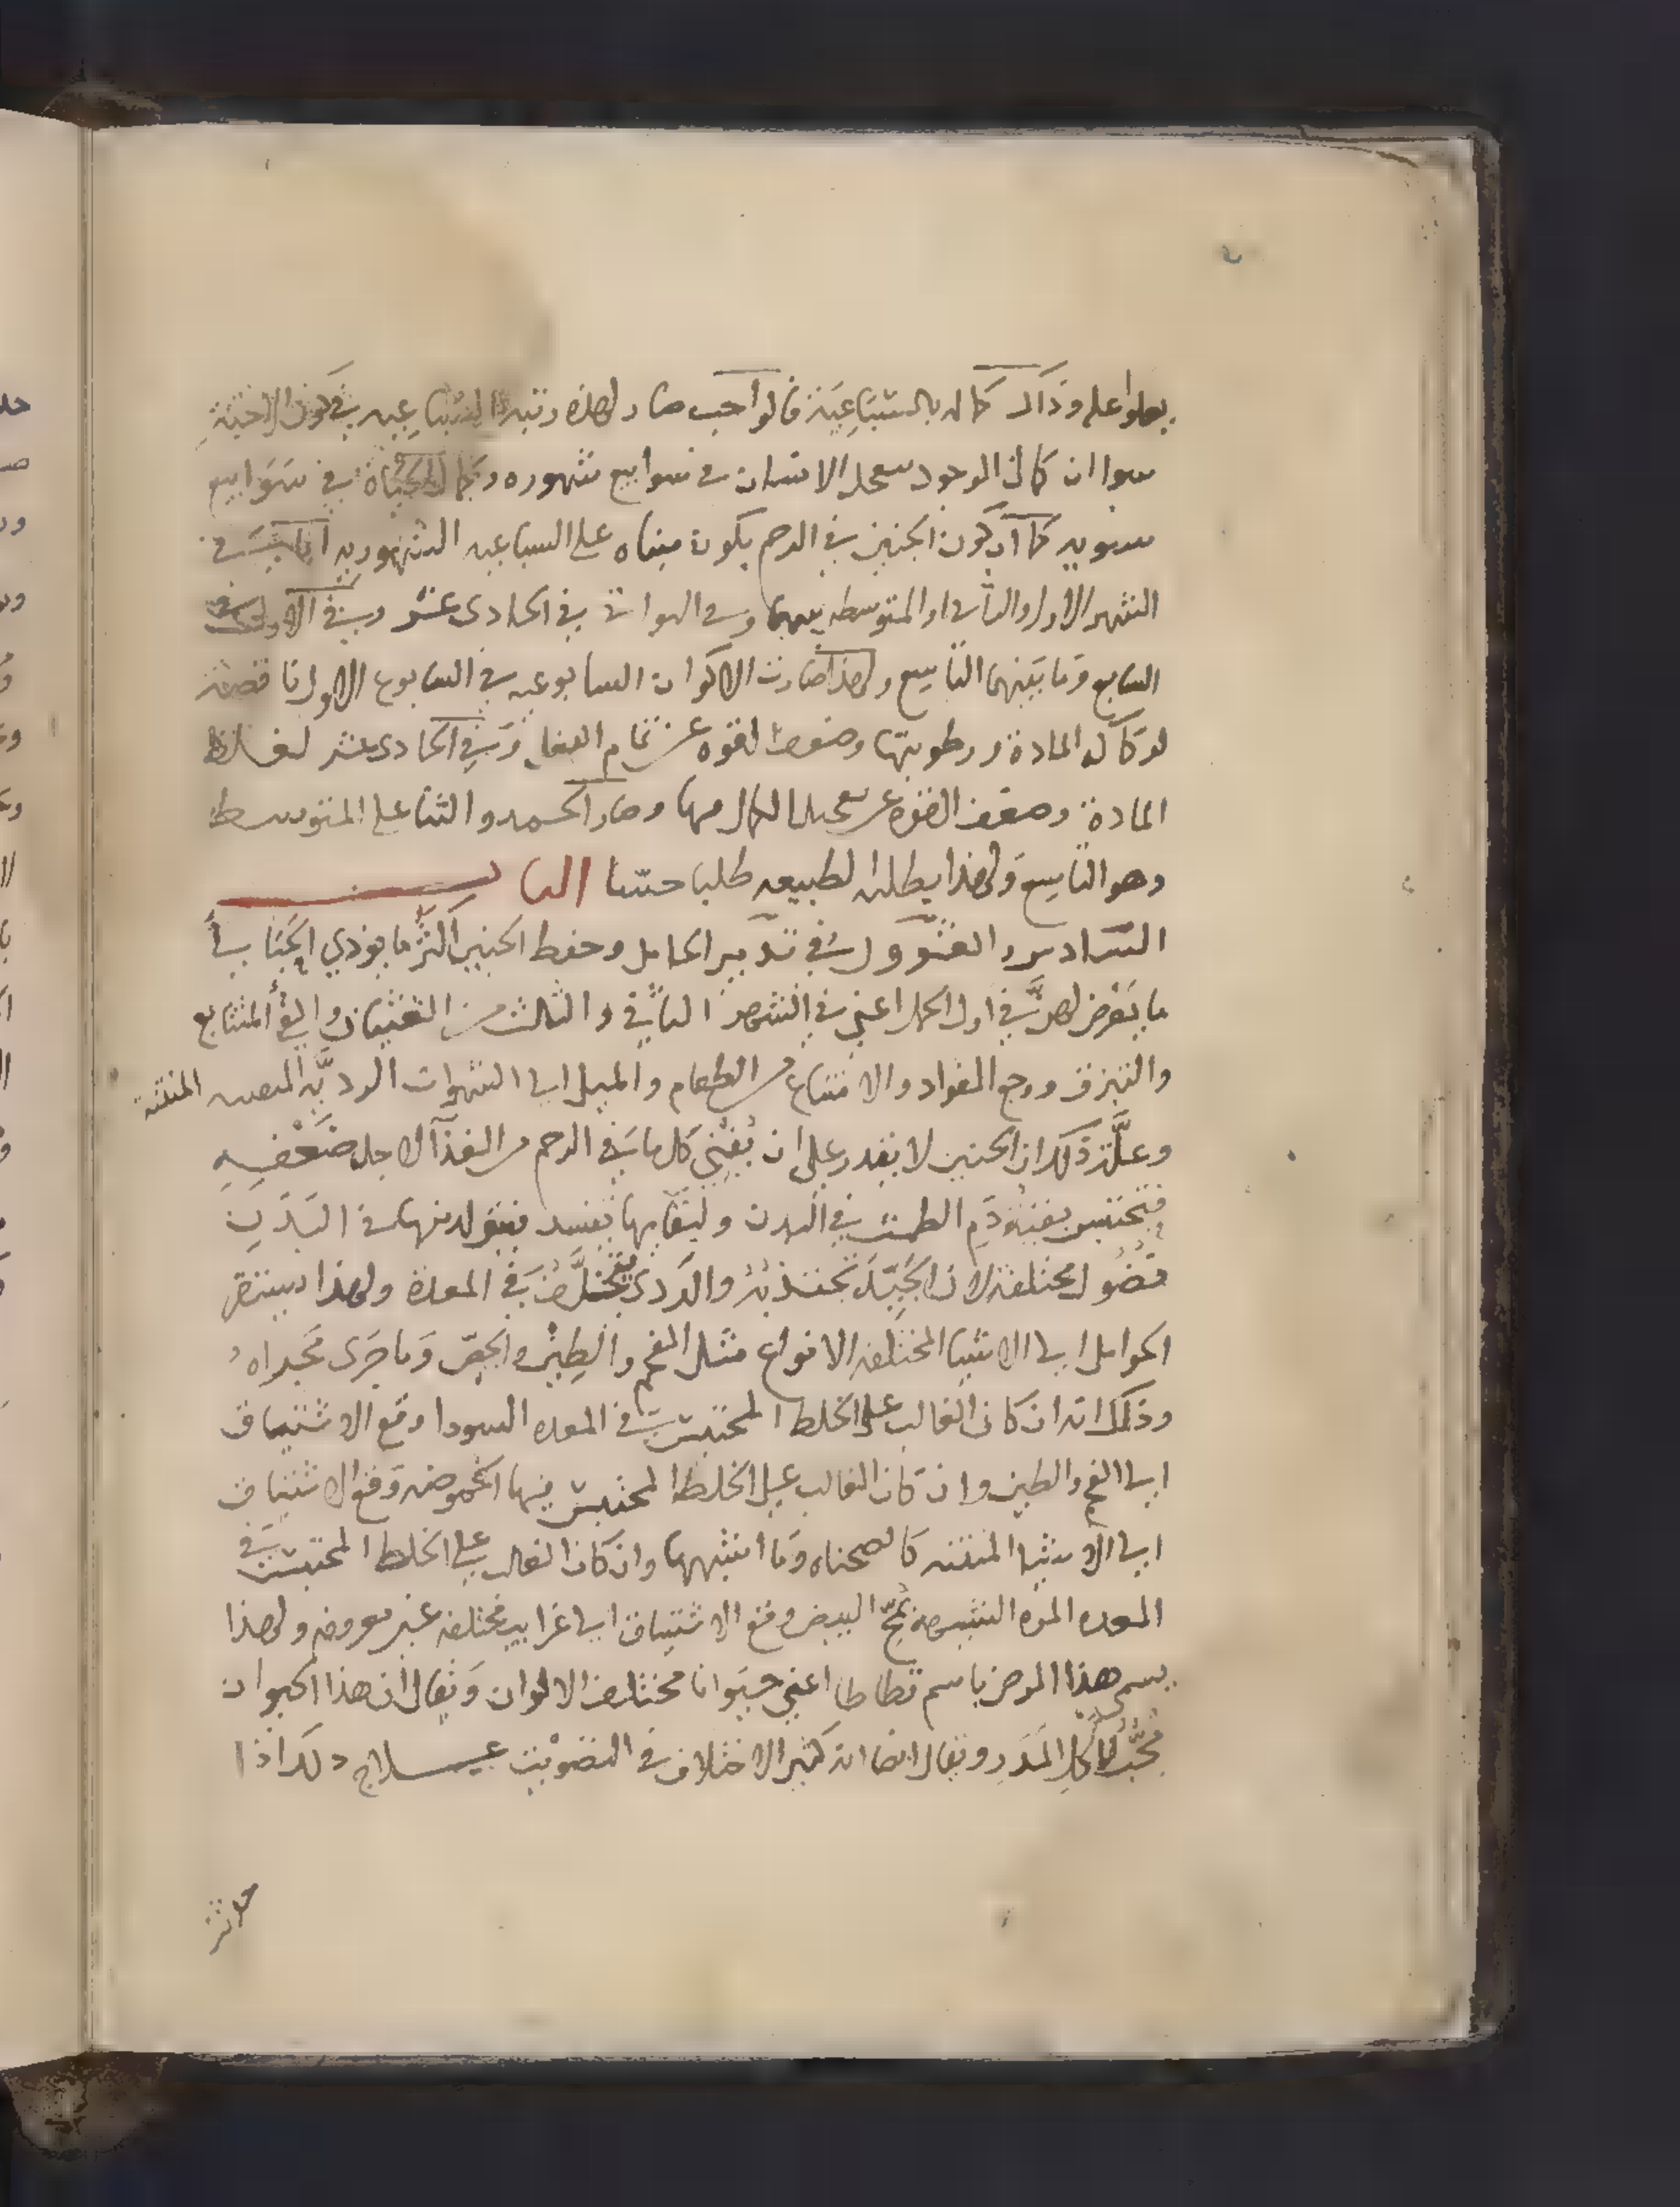 يعلوا على وذاك كماله بالسباعية فالواجب صار لهذه رتبه السباعيه في كون الاجنة
سوا ان كمال الموجود سعجل الانسان في سوابيع شهوره وكمال الحياة في سوابيع
سنويه كما ان كون الجنين في الرحم يكون مبناه على السباعيه الشهوريه اما في
الشهر الاول والثاني او المتوسطه بينهما وفي الهوا في الحادى عشر وفي الاول في
السابع وما بينهما التاسع ولهذا صارت الاكوان السابوعيه في السابوع الاول ناقصة
لوكاله المادة ورطوبتها وضعف القوه عن تمام الفعل وفي الحادى عشر لغلظ
المادة وضعف القوه عن الكمال منها وصار الحمد والثنا على المتوسط
وهو التاسع ولهذا يطلبه الطبيعه طلبا حسنا الباب
السادس والعشرون في تدبير الحامل وحفظ الجنين اكثر ما يوذي الحبالي
ما يعرض لهن في اول الحمل اعني في الشهر الثاني والثالث من الغثيان والقئ المتتابع
والتبزق ووجع الفواد والامتناع من الطعام والميل الى الشهوات الرديه المنتنة
وعلة ذلك ان الجنين لا يقدر على ان يفني كل ما في الرحم من الغذا لاجل ضعفه
فيحتبس بقية دم الطمث في البدن ولبقايها يفسد فيتولد منها في البدن
فضول مختلفة لان الجيد تجتذبه والردى يتخلف في المعدة ولهذا يشتق
الحوامل الى الاشيا المختلفه الانواع مثل الفحم والطين والجص وما جرى مجراه
وذلك انه ان كان الغالب على الخلط المحتبس في المعده السودا وقع الاشتياق
الى الفحم والطين وان كان الغالب على الخلط المحتبس فيها الحموضه وقع الاشتياق
الى الاشيا المنتنه كالصحناه وما اشبهها وان كان الغالب على الخلط المحتبس في
المعده المره الشبيهه بمح البيض وقع الاشتياق الى غرايب مختلفه غير معروفه ولهذا
يسمى هذا المرض باسم قطاطا اعني حيوانا مختلف الالوان ويقال ان هذا الحيوان
محب لاكل المدر ويقال ايضا انه كثير الاختلاف في التصويت علاج ذلك اذا